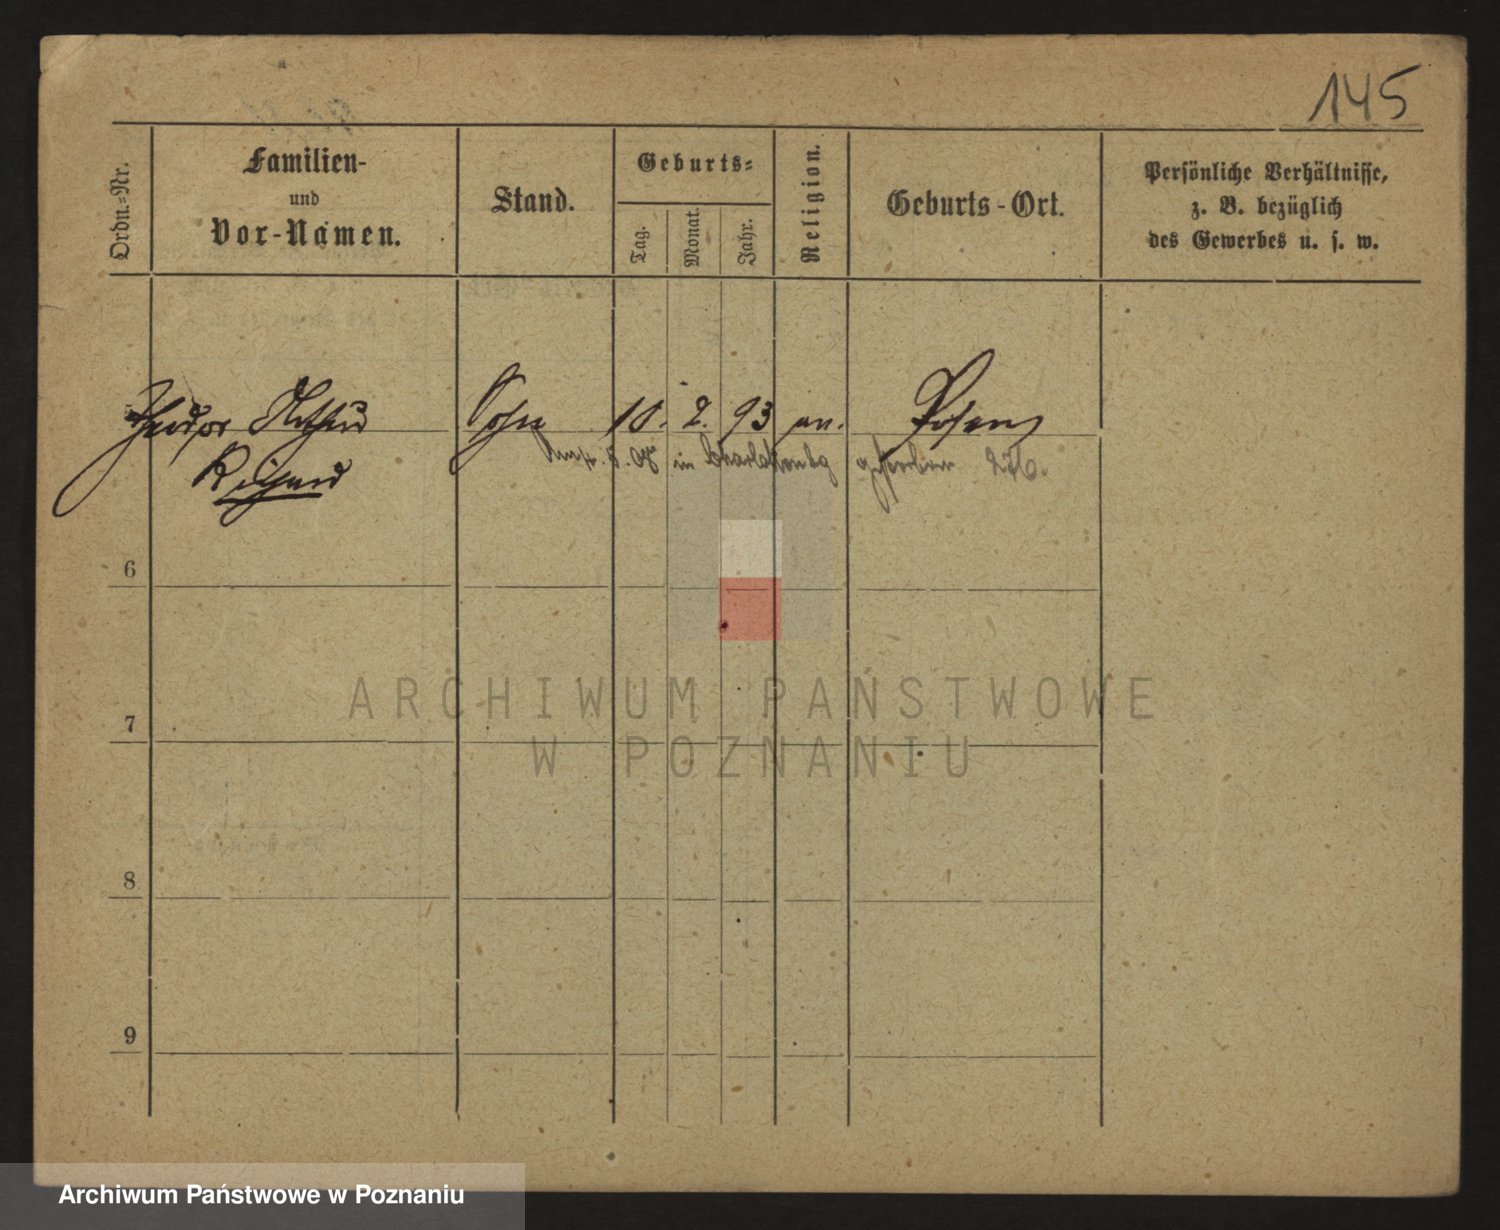 145
Ordn.-Nr.
Familien-
und
Vor-Namen.
Stand.
Geburts-
Tag.
Monat.
Jahr.
Religion.
Geburts-Ort.
Persönliche Verhältnisse,
z. B. bezüglich
des Gewerbes u. s. w.
Theodor Arthur Sohn 10. 2. 93 Posen
Richard
in gestorben 276.
6
7
8
9
ARCHIWUM PAŃSTWOWE
W POZNANIU
Archiwum Państwowe w Poznaniu